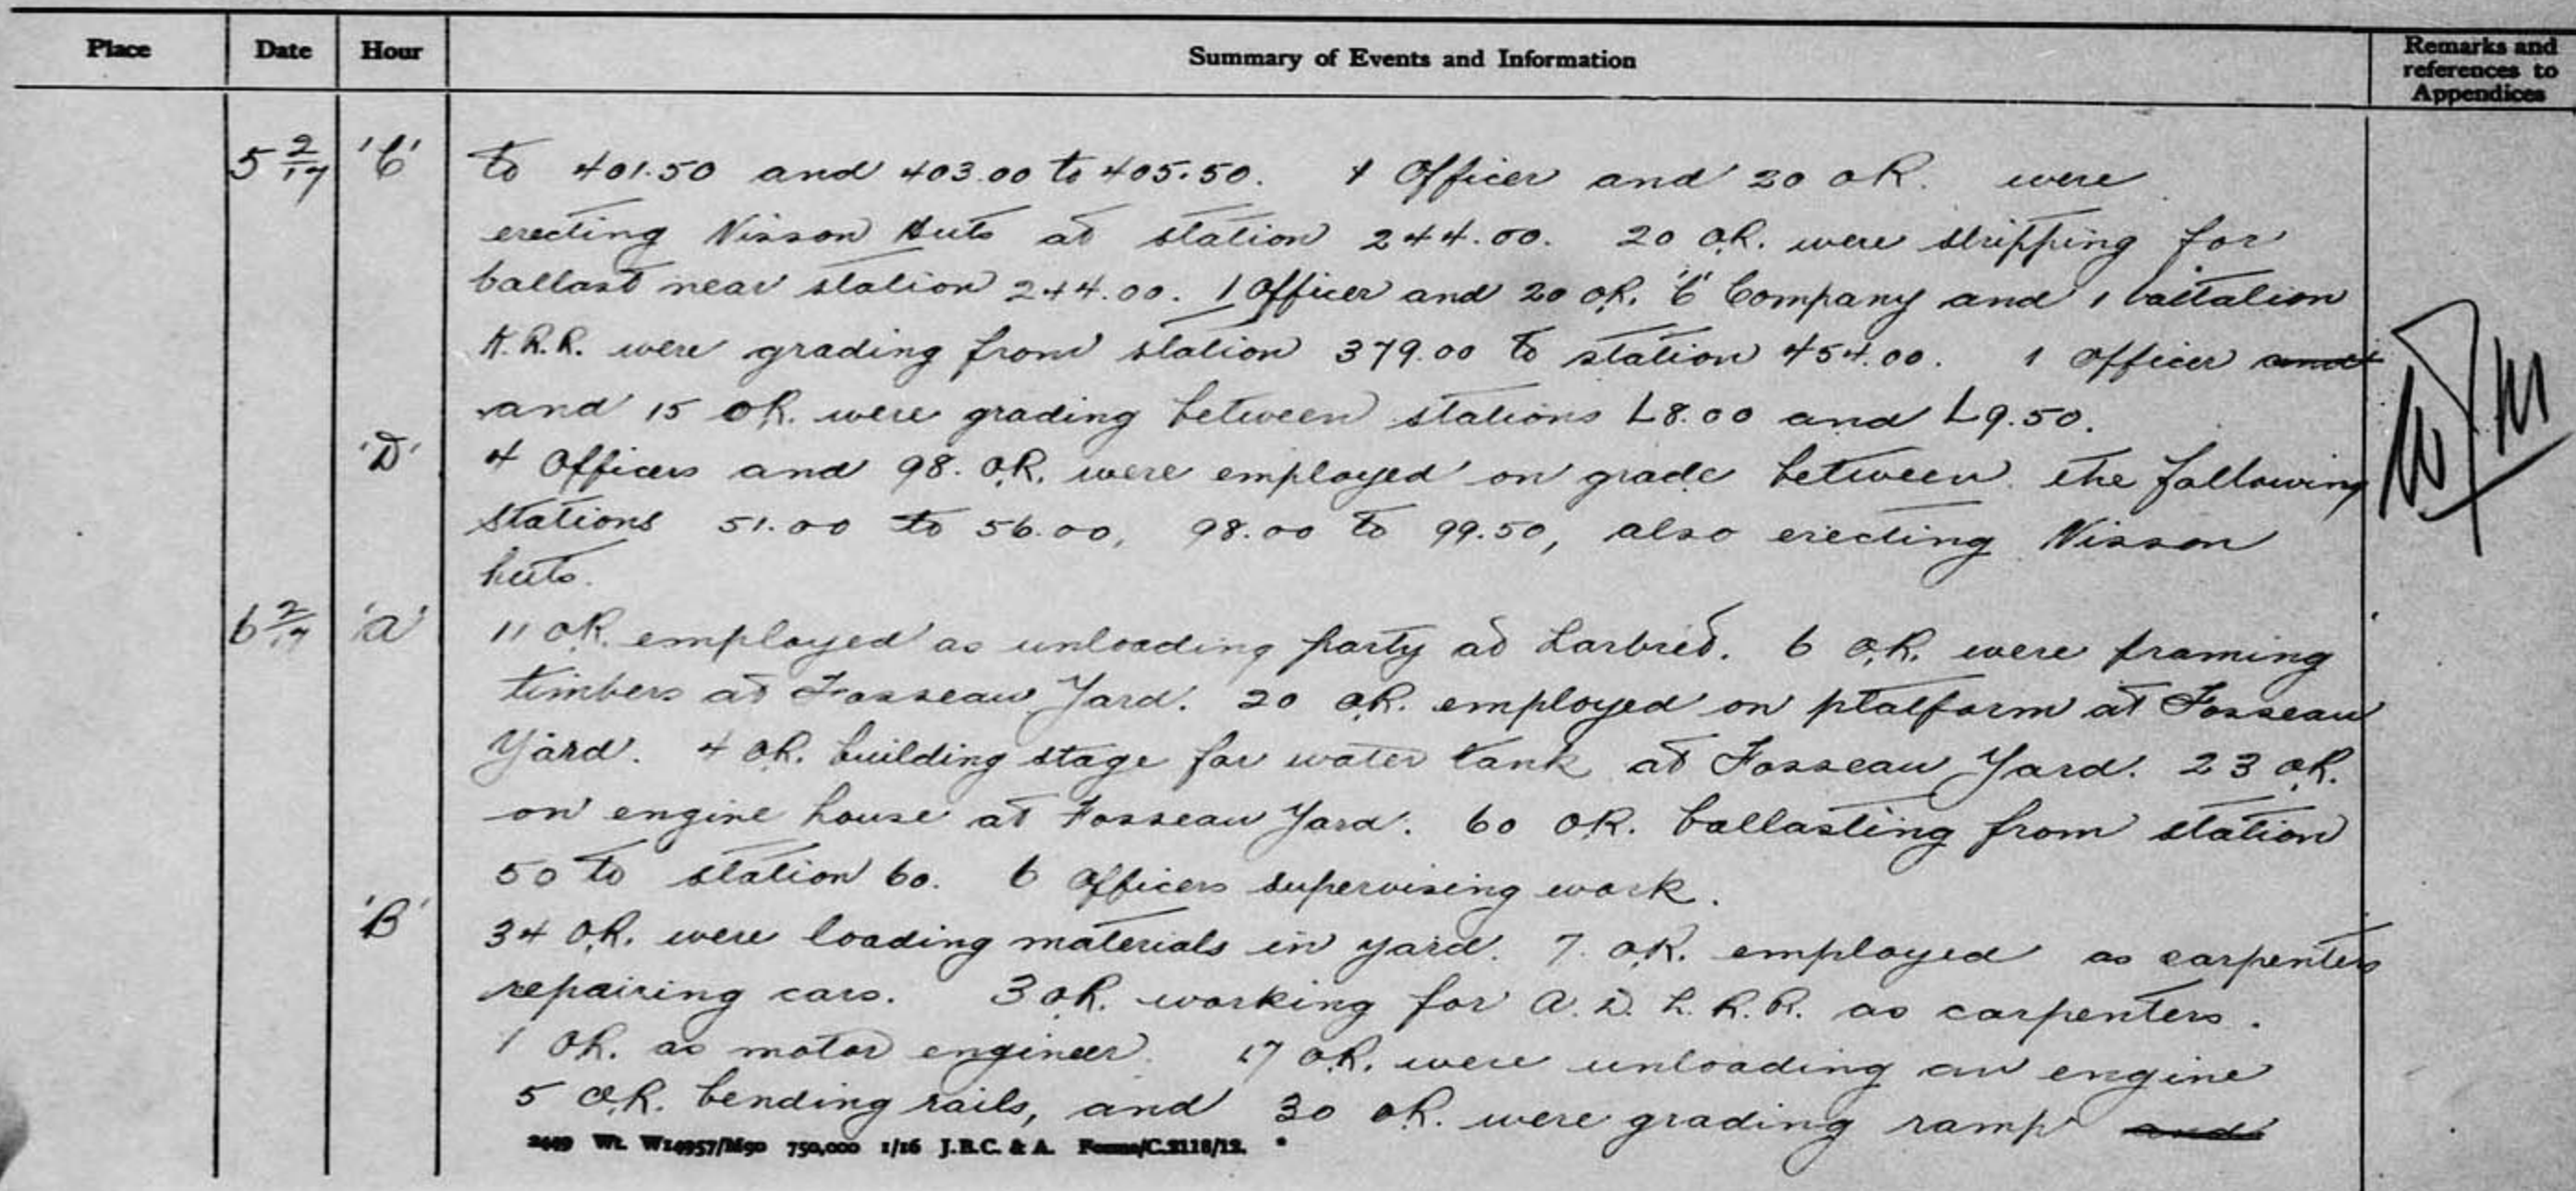 Place Date Hour Summary of Events and Information Remarks and references to Appendices
5 2/17 'C' to 401.50 and 403.00 to 405.50. 1 Officer and 20 OR. were
erecting Nisson Huts at station 244.00. 20 O.R. were stripping for
ballast near station 244.00. 1 Officer and 20 OR. 'C' Company and 1 battalion
K.R.R. were grading from station 379.00 to station 454.00. 1 Officer and
and 15 OR. were grading between stations L8.00 and L9.50.
'D' 4 Officers and 98. O.R. were employed on grade between the following
stations 51.00 to 56.00, 98.00 to 99.50, also erecting Nisson
huts.
6 2/17 'A' 11 OR. employed as unloading party at Larbret. 6 O.R. were framing
timbers at Fosseau Yard. 20 OR. employed on platform at Fosseau
Yard. 4 OR. building stage for water tank at Fosseau Yard. 23 OR.
on engine house at Fosseau Yard. 60 OR. ballasting from station
50 to station 60. 6 Officers supervising work.
'B' 34 O.R. were loading materials in yard. 7. O.R. employed as carpenters
repairing cars. 3 OR. working for A.D.L.R.R. as carpenters.
1 OR. as motor engineer. 17 O.R. were unloading an engine
5 O.R. bending rails, and 30 OR. were grading ramp and
2449 Wt. W14957/M90 750,000 1/16 J.B.C. & A. Forms/C.2118/12.